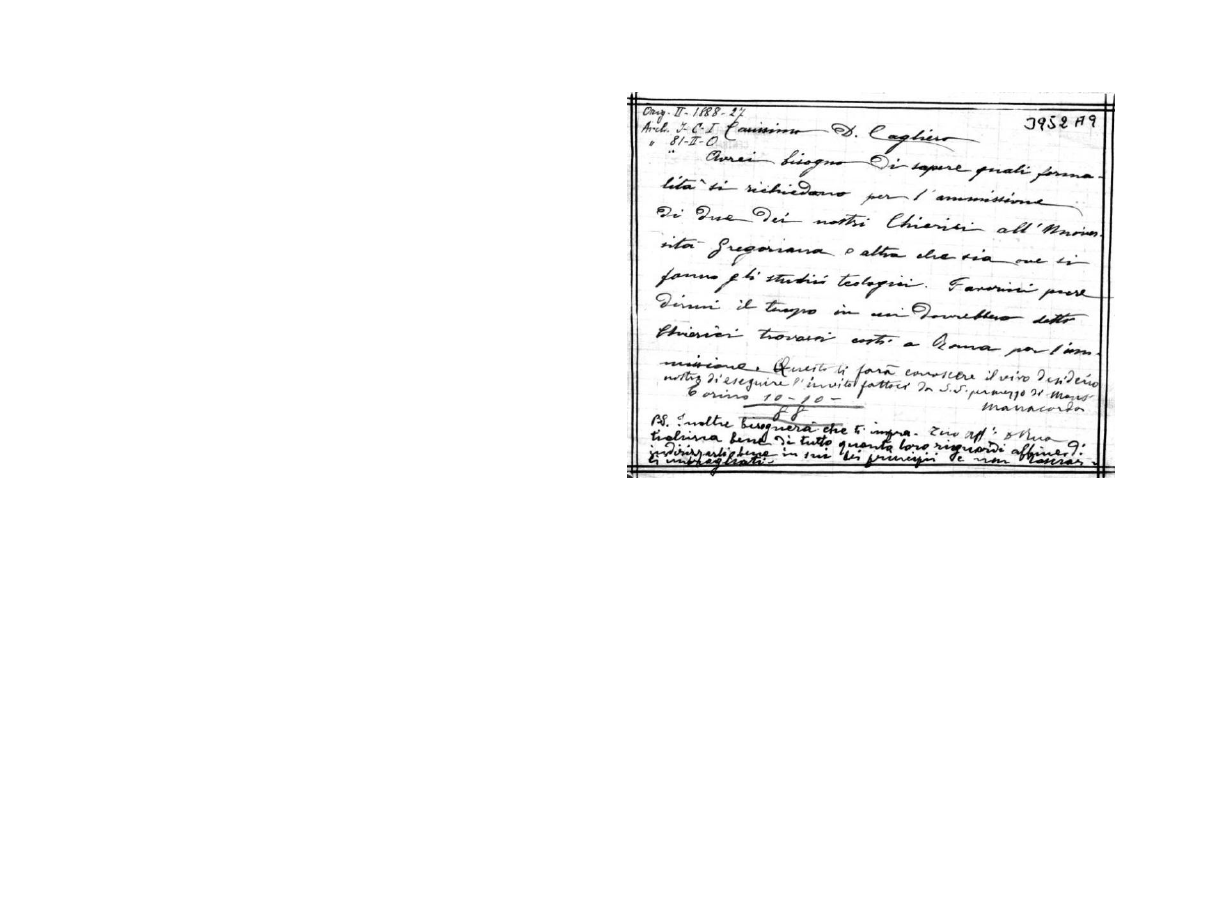 Orig. II - 1888 - 27
3952 A9
Arch. J-C-I Carissimo D. Cagliero
" 81-II-O
Avrei bisogno di sapere quali forma-
lità si richiedano per l'ammissione
di due dei nostri Chierici all'Univer-
sità Gregoriana o altra che sia ove si
fanno gli studii teologici. Favorirci pure
dirmi il tempo in cui dovrebbero detti
Chierici trovarsi costì a Roma per l'am-
missione. Questo ti farà conoscere il vivo desiderio
nostro di eseguire l'invito fattoci da S.S. per mezzo di Mons
Torino 10-10- Manacorda
88
PS. Inoltre bisognerà che ti impra- Tuo aff. D Rua
tichissa bene di tutto quanto loro riguardi affine di
indirizzarli bene in sui bei principii e non